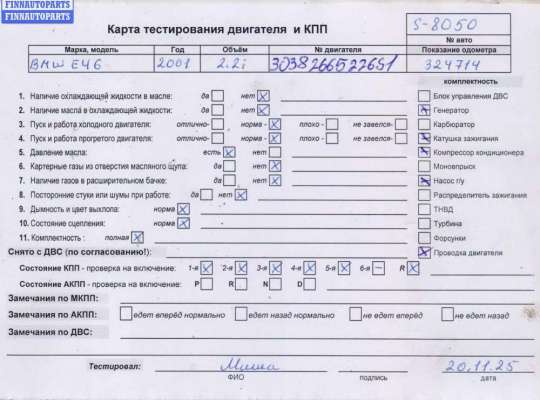 FINNAUTOPARTS
FINNAUTOPARTS
Карта тестирования двигателя и КПП
S-8050
№ авто
Марка, модель Год Объём № двигателя Показание одометра
BMW E46 2001 2.2i 3038266522651 324714
комплектность
1. Наличие охлаждающей жидкости в масле: да нет
Блок управления ДВС
2. Наличие масла в охлаждающей жидкости: да нет
Генератор
3. Пуск и работа холодного двигателя: отлично- норма - плохо - не завелся-
Карбюратор
4. Пуск и работа прогретого двигателя: отлично- норма - плохо - не завелся-
Катушка зажигания
5. Давление масла: есть нет
Компрессор кондиционера
6. Картерные газы из отверстия масляного щупа: да нет
Моновпрыск
7. Наличие газов в расширительном бачке: да нет
Насос г/у
8. Посторонние стуки или шумы при работе: да нет
Распределитель зажигания
9. Дымность и цвет выхлопа: норма
ТНВД
10. Состояние сцепления: норма
Турбина
11. Комплектность : полная
Форсунки
Снято с ДВС (по согласованию!):
Проводка двигателя
Состояние КПП - проверка на включение: 1-я 2-я 3-я 4-я 5-я 6-я R
Состояние АКПП - проверка на включение: P R N D
Замечания по МКПП:
Замечания по АКПП: едет вперёд нормально едет назад нормально не едет вперёд не едет назад
Замечания по ДВС:
Тестировал: Миша 20.11.25
ФИО подпись дата